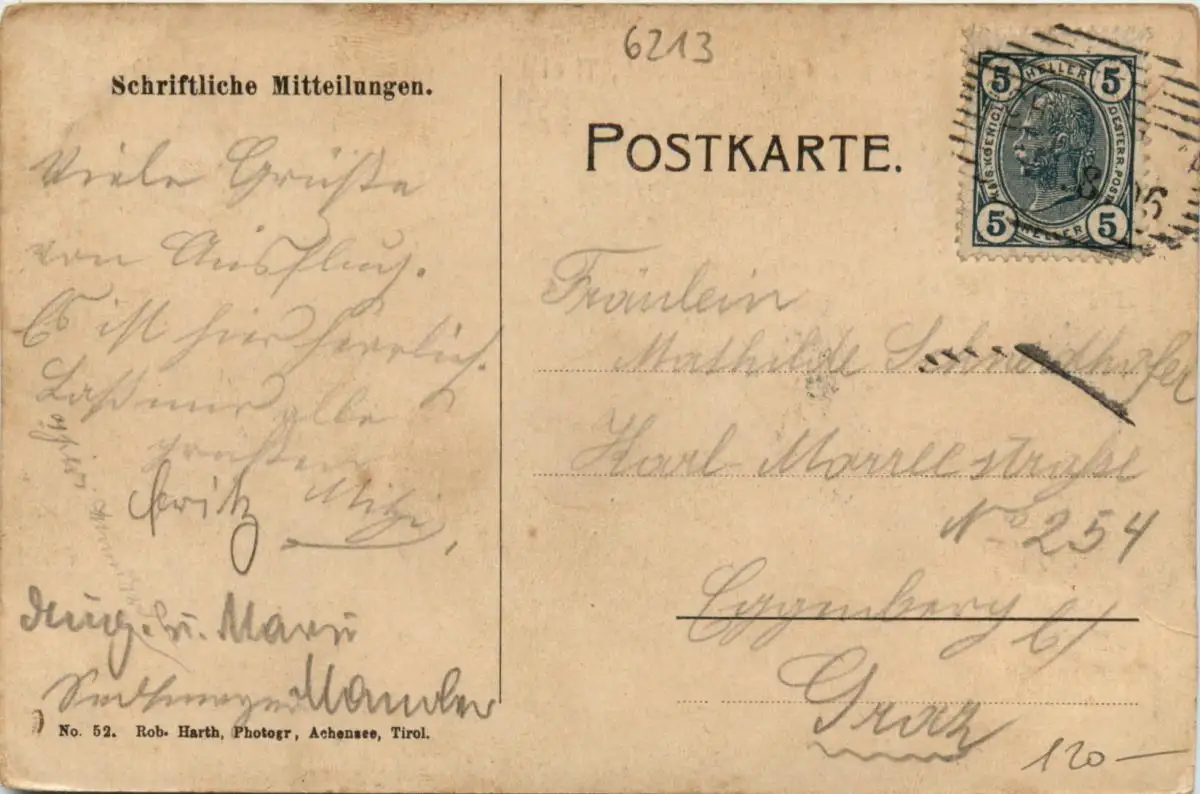 6213
Schriftliche Mitteilungen.
POSTKARTE.
5 HELLER 5
KAIS. KOENIGL. OESTERR. POST
5 HELLER 5
Viele Grüße
von Ausflug.
Es ist hier herrlich.
Laß mir alle
grüßen
Fritz Mitzi
u. Marie
Fräulein
Mathilde Schmidhofer
Karl Morrestraße
No 254
Eggenberg b/
Graz
No. 52. Rob. Harth, Photogr, Achensee, Tirol.
120—